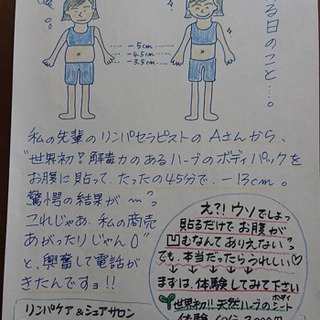 る日のこと…。
-5cm
-4.5cm
-3.5cm
私の先輩のリンパセラピストのAさんから、
"世界初?解毒力のあるハーブのボディパックを
お腹に貼って、たったの45分で、-13cm。
驚愕の結果が
これじゃあ、私の商売
あがったりじゃん
と、興奮して電話が
きたんですョ!!
え?!ウソでしょっ
貼るだけでお腹が
凹むなんてありえない
でも、本当だったらうれしい♡
↓ ↓ ↓ ↓ ↓
まずは、体験してみて下さい
世界初!!天然ハーブのボディシート
体験
リンパケア&シェアサロン